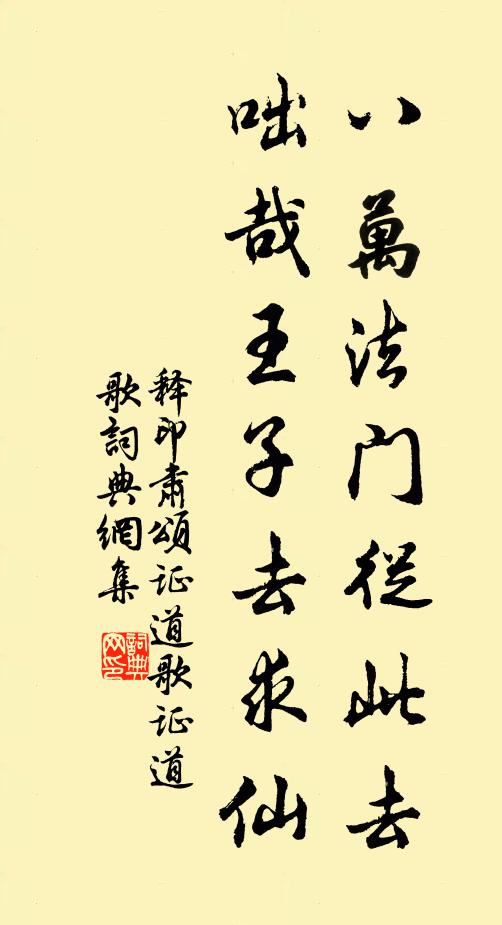 八萬法門從此去
咄哉王子去求仙
释印肃頌证道歌证道
歌詞典網集
詞典
网印